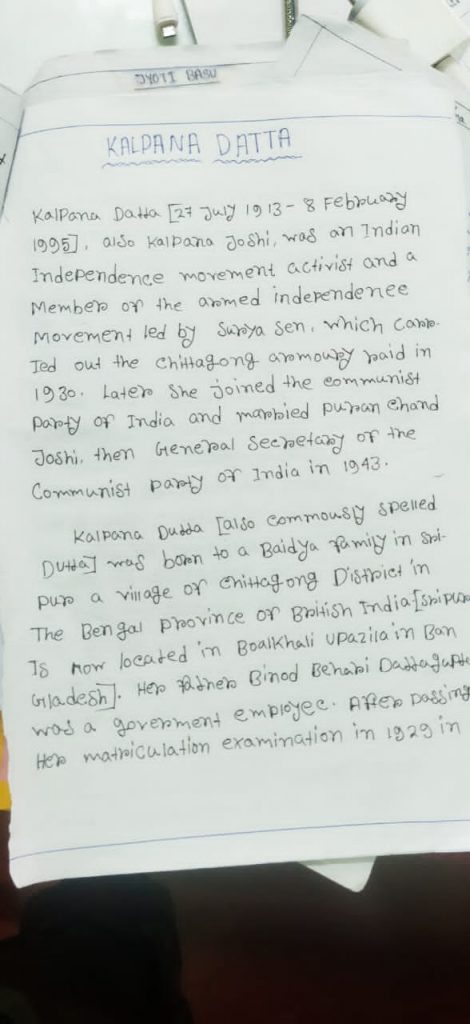 JYOTI BASU
KALPANA DATTA
Kalpana Datta [27 July 1913 - 8 February
1995], also Kalpana Joshi, was an Indian
Independence movement activist and a
Member of the armed independence
Movement led by Surya Sen, which carr-
Ied out the Chittagong armoury raid in
1930. Later She joined the communist
Party of India and married Puran Chand
Joshi, then General Secretary of the
Communist party of India in 1943.
Kalpana Dutta [also commously spelled
Dutta] was born to a Baidya family in Sri-
pur a village of Chittagong District in
The Bengal province of British India [Sripur
Is now located in Boalkhali Upazila in Ban
Gladesh]. Her father Binod Behari Dattagupta
was a goverment employee. After passing
Her matriculation examination in 1929 in